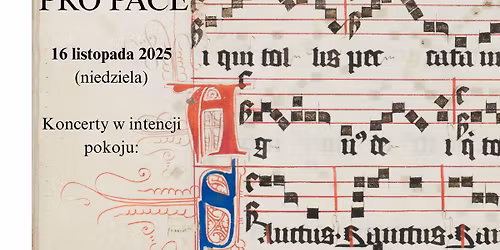 PRO PACE
16 listopada 2025
(niedziela)
Koncerty w intencji
pokoju:
i qui tol lis pec cata m
A
g
i q to
Sanctus